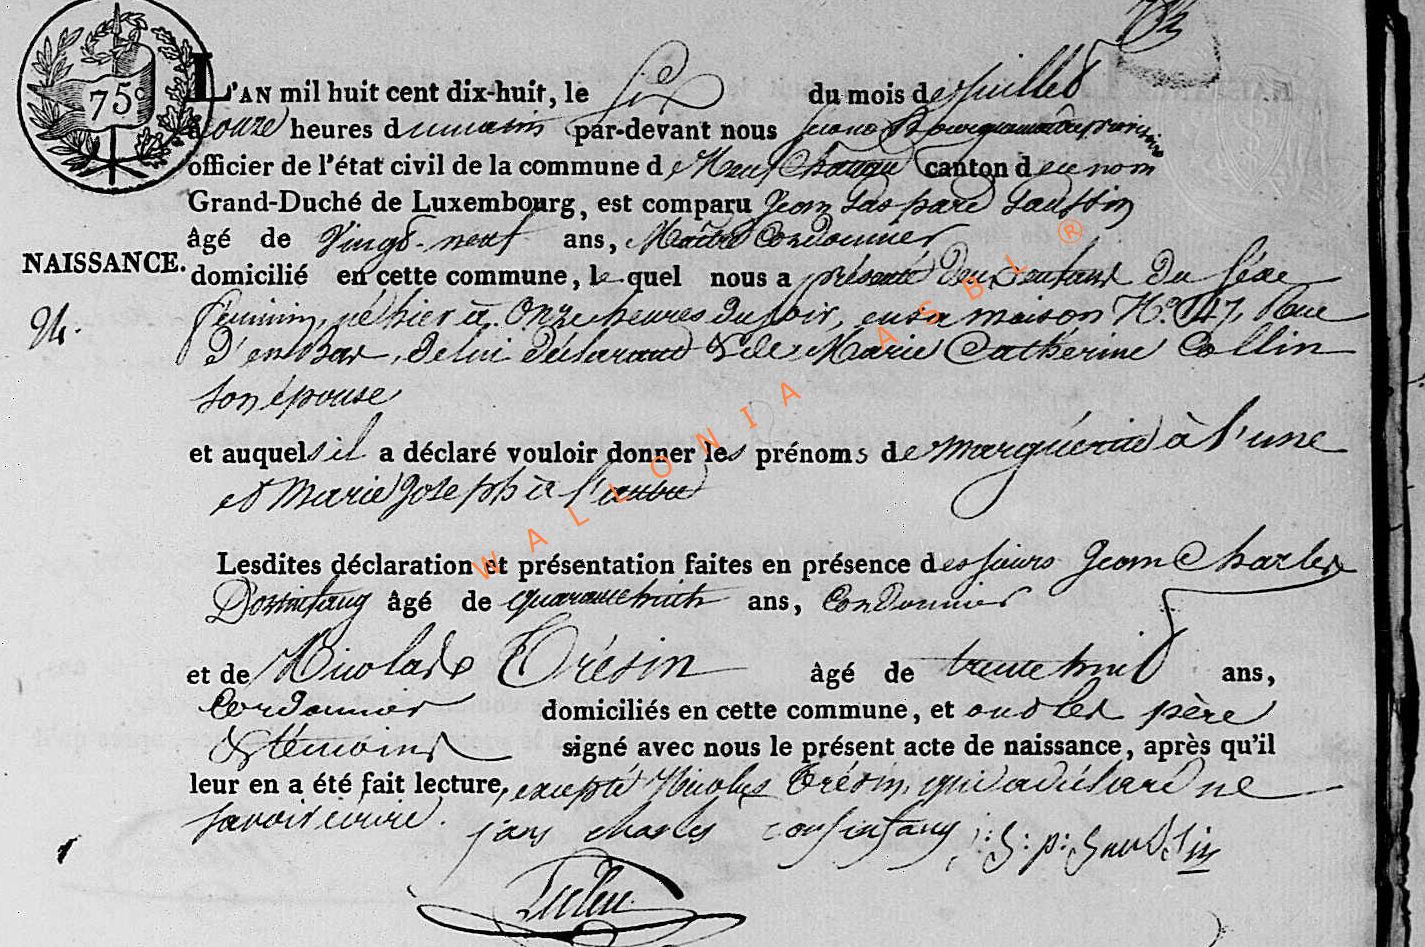 75 c
L'AN mil huit cent dix-huit, le Six du mois de Juillet
à onze heures du matin par-devant nous Bourguemaître
officier de l'état civil de la commune de Neufchateau canton du même nom
Grand-Duché de Luxembourg, est comparu Jean Gaspard Gaussin
âgé de Vingt-neuf ans, Maître Cordonnier
NAISSANCE.
domicilié en cette commune, lequel nous a présenté deux Enfants du Séxe
féminin, né hier à Onze heures du soir, en sa maison N.° 147, Rue
d'en Bas, de lui déclarant & de Marie Catherine Collin
son épouse
et auquels il a déclaré vouloir donner les prénoms de Marguérite à l'une
et Marie Joseph à l'autre
Lesdites déclaration et présentation faites en présence des sieurs Jean Charles
âgé de quarante huit ans, Cordonnier
et de Nicolas Trésin âgé de trente huit ans,
Cordonnier domiciliés en cette commune, et ont les père
& témoins signé avec nous le présent acte de naissance, après qu'il
leur en a été fait lecture, excepté Nicolas Trésin, qui a déclaré ne
savoir écrire. jean charles
WALLONIA ASBL ®